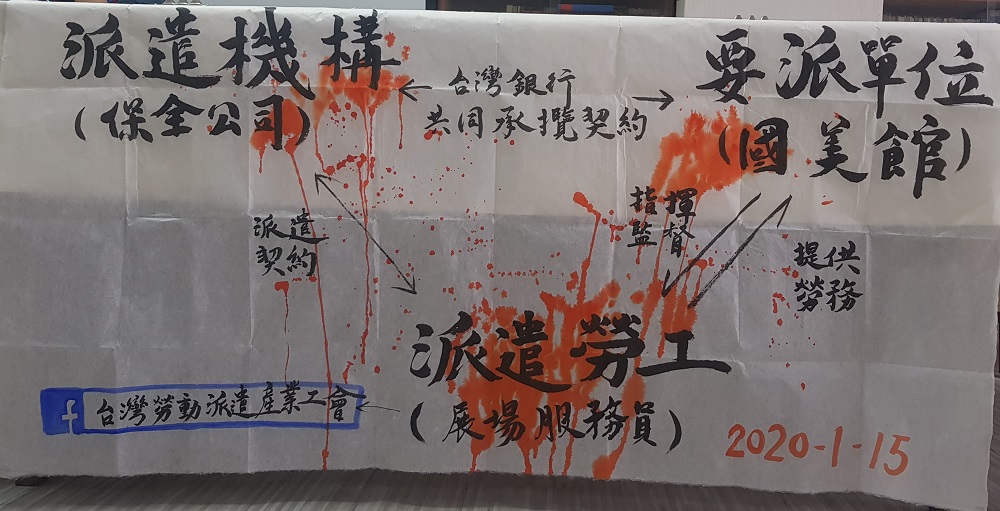 派遣機構
(保全公司)
台灣銀行
共同承攬契約
要派單位
(國美館)
派遣
契約
指揮
監督
提供
勞務
派遣勞工
(展場服務員)
f 台灣勞動派遣產業工會
2020-1-15